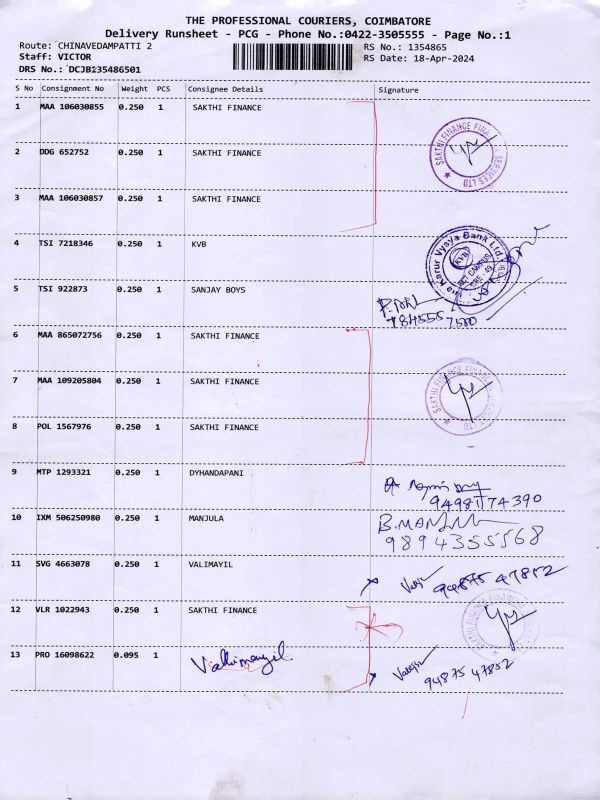 THE PROFESSIONAL COURIERS, COIMBATORE
Delivery Runsheet - PCG - Phone No.:0422-3505555 - Page No.:1
Route: CHINAVEDAMPATTI 2 RS No.: 1354865
Staff: VICTOR RS Date: 18-Apr-2024
DRS No.: DCJB135486501
S No Consignment No Weight PCS Consignee Details Signature
1 MAA 106030855 0.250 1 SAKTHI FINANCE
SAKTHI FINANCE FINANCIAL SERVICES LTD
2 DDG 652752 0.250 1 SAKTHI FINANCE
3 MAA 106030857 0.250 1 SAKTHI FINANCE
4 TSI 7218346 0.250 1 KVB
Karur Vysya Bank Ltd.
KVB
5 TSI 922873 0.250 1 SANJAY BOYS
6 MAA 865072756 0.250 1 SAKTHI FINANCE
7 MAA 109205804 0.250 1 SAKTHI FINANCE
SAKTHI FINANCE
8 POL 1567976 0.250 1 SAKTHI FINANCE
9 MTP 1293321 0.250 1 DYHANDAPANI
10 IXM 506250980 0.250 1 MANJULA
9894355568
11 SVG 4663078 0.250 1 VALIMAYIL
94875 47852
12 VLR 1022943 0.250 1 SAKTHI FINANCE
SAKTHI FINANCE
13 PRO 16098622 0.095 1
94875 47852